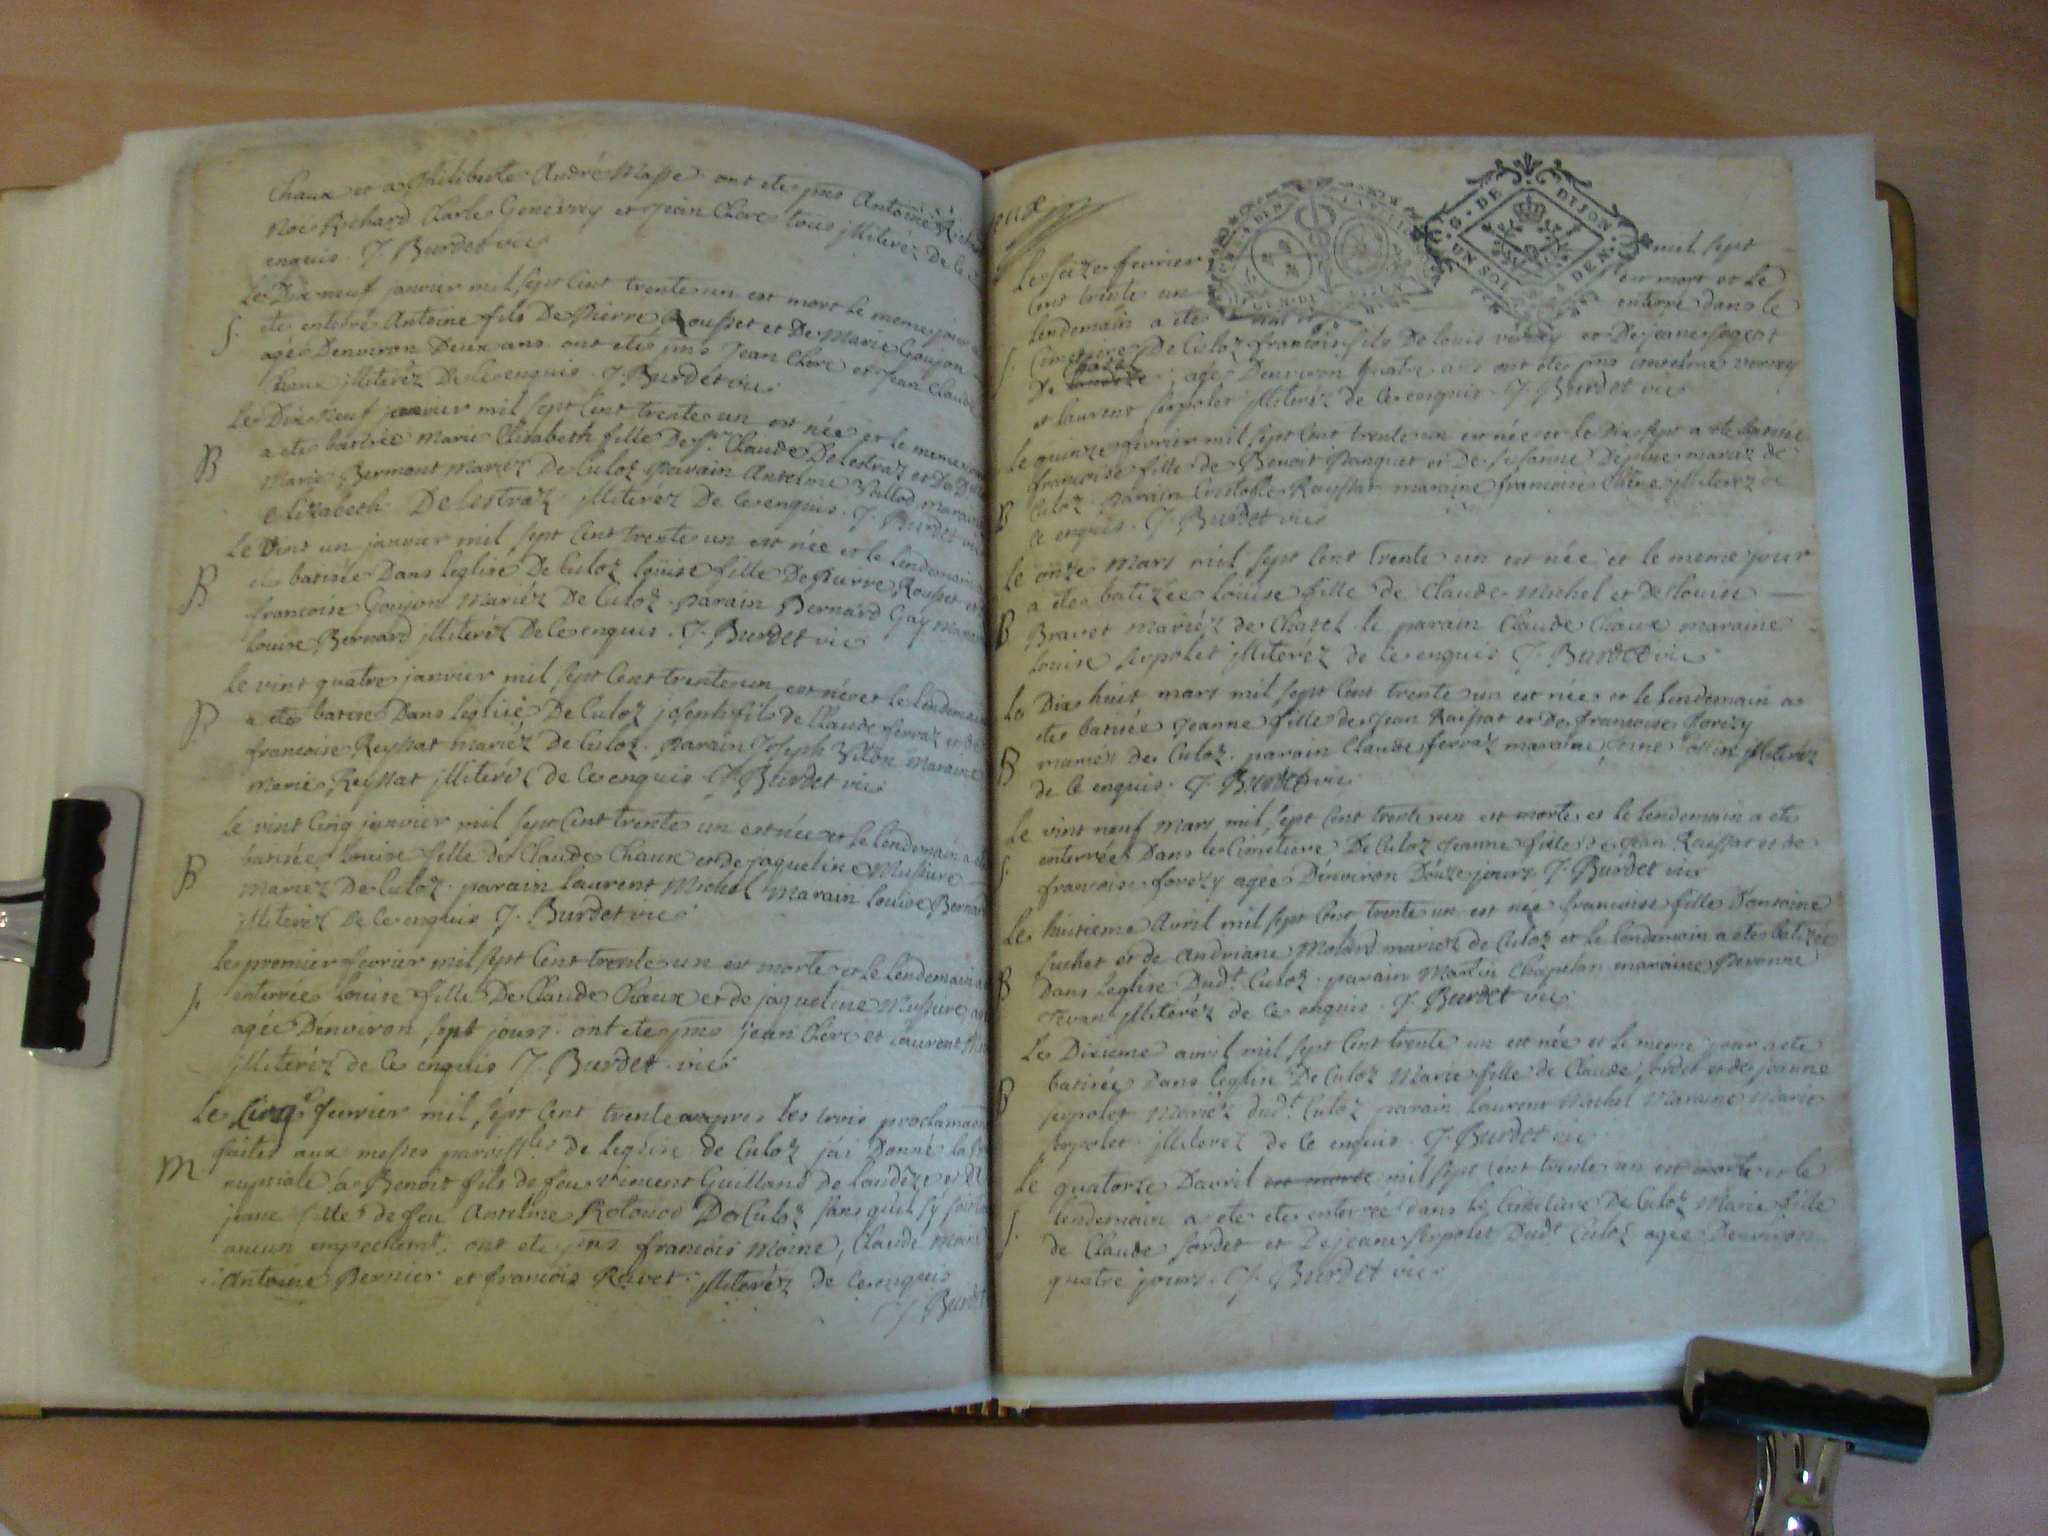 Chaux et a Philiberte André Masse ont ete pns Antoine
Noé Richard Charle Genevrey et Jean Clerc tous illiteréz De ce
enquis. J. Burdet vic
Le Dix neuf janvier mil sept cent trente un est mort le meme jour
S. ete enterré Antoine fils De Pierre Rousset et De Marie Goujon
agée Denviron Deux ans ont ete pns Jean Clerc et Jean Claude
Chaux illiteréz De ce enquis. J. Burdet vic
Le Dix neuf janvier mil sept cent trente un est née et le meme jour
B a ete batisée Marie Elizabeth fille De sr Claude Delestraz et De
Marie Bermont mariéz De Culoz parain Antelme Vallod maraine
Elizabeth Delestraz illiteréz De ce enquis. J. Burdet vic
Le vint un janvier mil sept cent trente un est née et le lendemain
B ete batisée Dans leglise De Culoz louise fille De Pierre Rousset et
francoise Goujon Mariéz De Culoz parain Bernard Gay
louise Bernard illiteréz De ce enquis. J. Burdet vic
Le vint quatre janvier mil sept cent trente un est né et le lendemain
B a ete batisé Dans leglise De Culoz joseph fils de Claude ferraz et
francoise Reyssat mariéz De Culoz. parain Joseph Vilon Maraine
Marie Reyssat illiteréz de ce enquis. J. Burdet vic
Le vint cinq janvier mil sept cent trente un est née et le lendemain a
B batisée louise fille de Claude Chaux et de jaqueline Mussire
Mariéz De Culoz. parain laurent Michel Marain louise Bernard
illiteréz De ce enquis J. Burdet vic
le premier fevrier mil sept cent trente un est morte et le lendemain
S. enterrée louise fille De Claude Chaux et de jaqueline Mussire
agée Denviron sept jours. ont ete pns jean Clerc et laurent
illiteréz de ce enquis J. Burdet. vic
Le Cinq fevrier mil sept cent trente apres les trois proclamaons
faites aux messes paroissles de leglise de Culoz jai Donné la
M nuptiale a Benoit fils de feu vincent Guilland de landeze et
jeane fille de feu Antelme Rotoud De Culoz sans quil sy soit
aucun empechemt. ont ete pns francois Moine, Claude
Antoine Bernier et francois Ravet illiteréz de ce enquis
J. Burdet
Le seize fevrier mil sept
Cent trente un est mort et le
lendemain a ete enterré dans le
S. Cimetiere De Culoz francois fils De louis verney et De jeane
De chazel age Denviron quatre ans ont ete pns Antelme verney
et laurent serpolet illiteréz de ce enquis. J. Burdet vic
Le quinze fevrier mil sept cent trente un est née et le Dix sept a ete batisée
francoise fille de Benoit Panquet et De susanne mariéz de
B Culoz parain Cristofle Rayssat maraine francoise Chêne illiteréz
ce enquis. J. Burdet vic
Le onze Mars mil sept cent trente un est née et le meme jour
a ete batizée louise fille de Claude Michel et De louise
B Bravet Mariéz de Chatel le parain Claude Chaux maraine
louise serpolet illiteréz de ce enquis J. Burdet vic
Le Dix huit mars mil sept cent trente un est née et le lendemain a
ete batisée jeanne fille de jean Raissat et De francoise forezy
B mariéz de Culoz. parain Claude ferraz maraine illiteréz
de ce enquis. J. Burdet vic
Le vint neuf Mars mil sept cent trente un est morte et le lendemain a ete
enterrée Dans le Cimetiere De Culoz jeanne fille de jean Raissat et de
S. francoise forezy agée Denviron Douze jours J. Burdet vic
Le huitieme Avril mil sept cent trente un est née francoise fille Dantoine
suchet et de Andriane Molard mariéz de Culoz et le lendemain a ete batizée
B Dans leglise Dudt Culoz. parain Martin Chapelan maraine Peronne
Tevan illiteréz de ce enquis. J. Burdet vic
Le Dixieme avril mil sept cent trente un est née et le meme jour a ete
batisée Dans leglise De Culoz Marie fille de Claude sordet et de jeanne
B serpolet Mariéz dudt Culoz parain laurent Michel Maraine Marie
serpolet. illiteréz de ce enquis. J. Burdet vic
Le quatorze Davril est morte mil sept cent trente un est morte et le
lendemain a ete ete enterrée dans le Cimetiere De Culoz Marie fille
S. de Claude sordet et De jeane serpolet Dudt Culoz agee Denviron
quatre jours. J. Burdet vic
G. DE DIJON
UN SOL DEN.